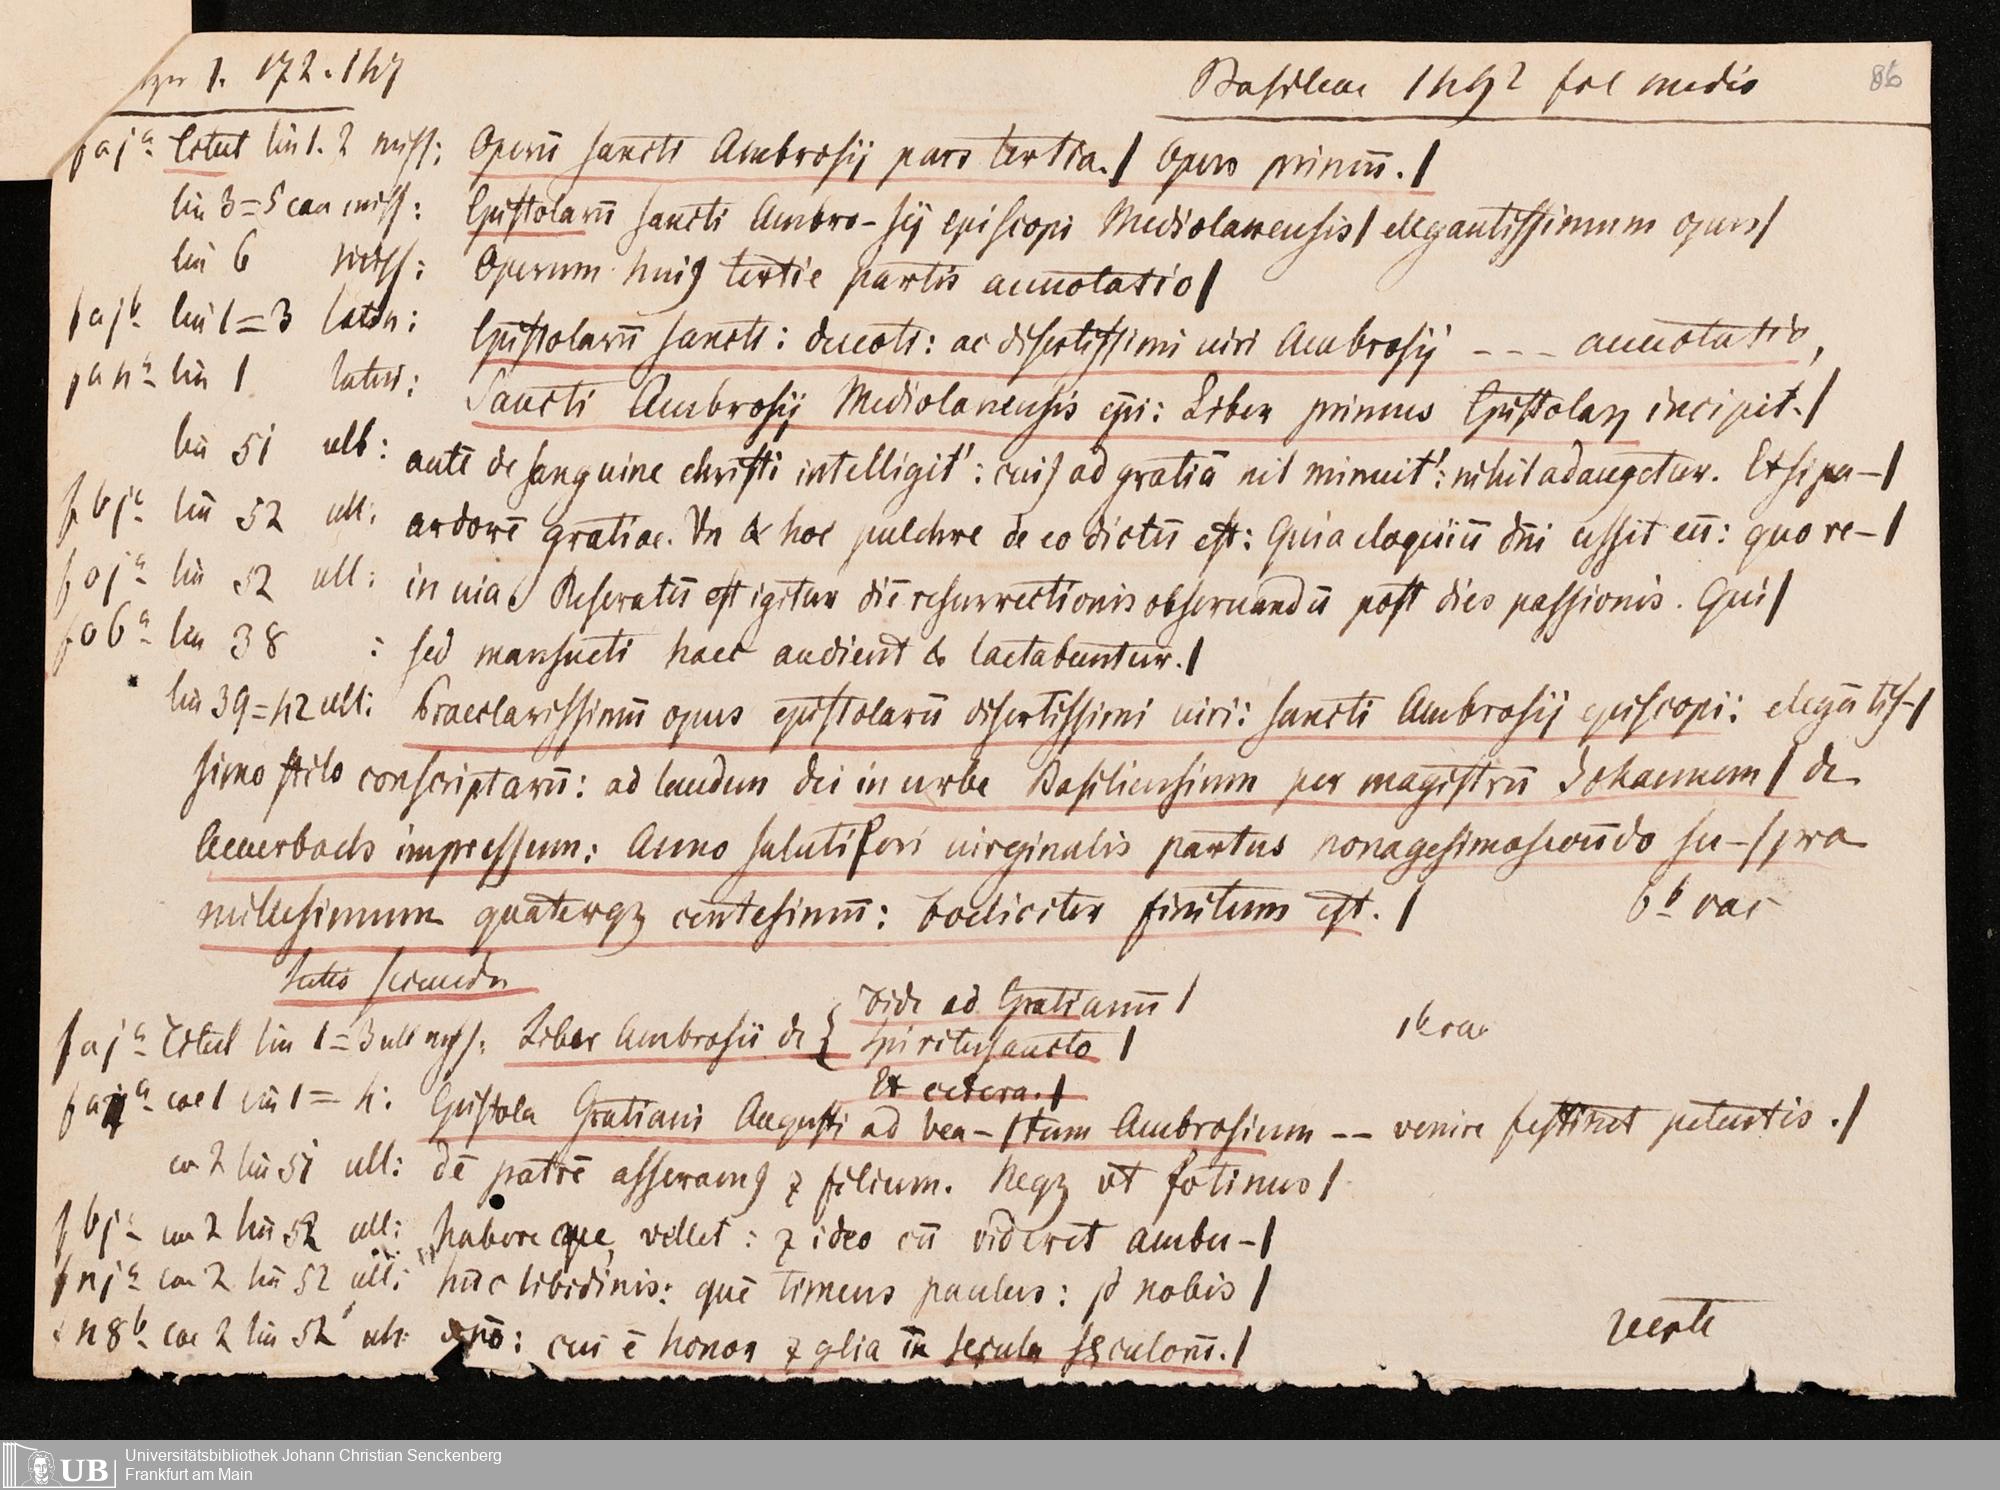 1. 172. 147
Basileae 1492 fol medio
86
f aja titul lin 1. 2 miss: Operū sancti Ambrosij pars tertia. | Opus primū. |
lin 3=5 caa miss: Epistolarū sancti Ambro-sij episcopi Mediolanensis | elegantissimum opus |
lin 6 miss: Operum huiꝰ tertie partis annotatio |
f ajb lin 1=3 latin: Epistolarū sancti: deuoti: ac disertissimi uiri Ambrosij --- annotatio,
lin 1 latin: Sancti Ambrosij Mediolanensis epi: Liber primus Epistolaꝝ incipit. |
lin 51 ull: autē de sanguine christi intelligit': cuiꝰ ad gratiā nil minuit': nihil adaugetur. Et si pa- |
f bja lin 52 ull: ardorē gratiae. Vn & hoc pulchre de eo dictū est: Quia eloquiū dn̄i ussit eū: quo re- |
f oja lin 52 ull: in uia. Reseratū est igitur diē resurrectionis obseruandū post dies passionis. Qui |
f o6a lin 38 : sed mansueti haec audient & laetabuntur. |
lin 39=42 ull: Praeclarissimū opus epistolarū disertissimi uiri: sancti Ambrosij episcopi: elegātis- |
simo stilo conscriptarū: ad laudem dei in urbe Basiliensium per magistrū Johannem | de
Amerbach impressum: Anno salutiferi uirginalis partus nonagesimosecūdo su- | pra
millesimum quaterqꝫ centesimū: Foeliciter finitum est. | 6b vac
secunda
f aja Titul lin 1=3 ull mss: Liber Ambrosii de { Fide ad Gratianū |
Spiritusancto | 1b vac
Et cetera. |
cae 1 lin 1=4: Epistola Gratiani Augusti ad bea- | tum Ambrosium -- venire festinet petentis. |
ca 2 lin 51 ull: dē patrē asseramꝰ ⁊ filium. Neqꝫ vt fotinus |
f bja cae 2 lin 52 ull: habere que vellet: ⁊ ideo cū videret ambu- |
f nja cae 2 lin 52 ull: hūc libidinis: quē timens paulus: nobis |
n8b cae 2 lin 52 ull: cui ē honor ⁊ glia in secula seculorū. |
verte
UB
Universitätsbibliothek Johann Christian Senckenberg
Frankfurt am Main